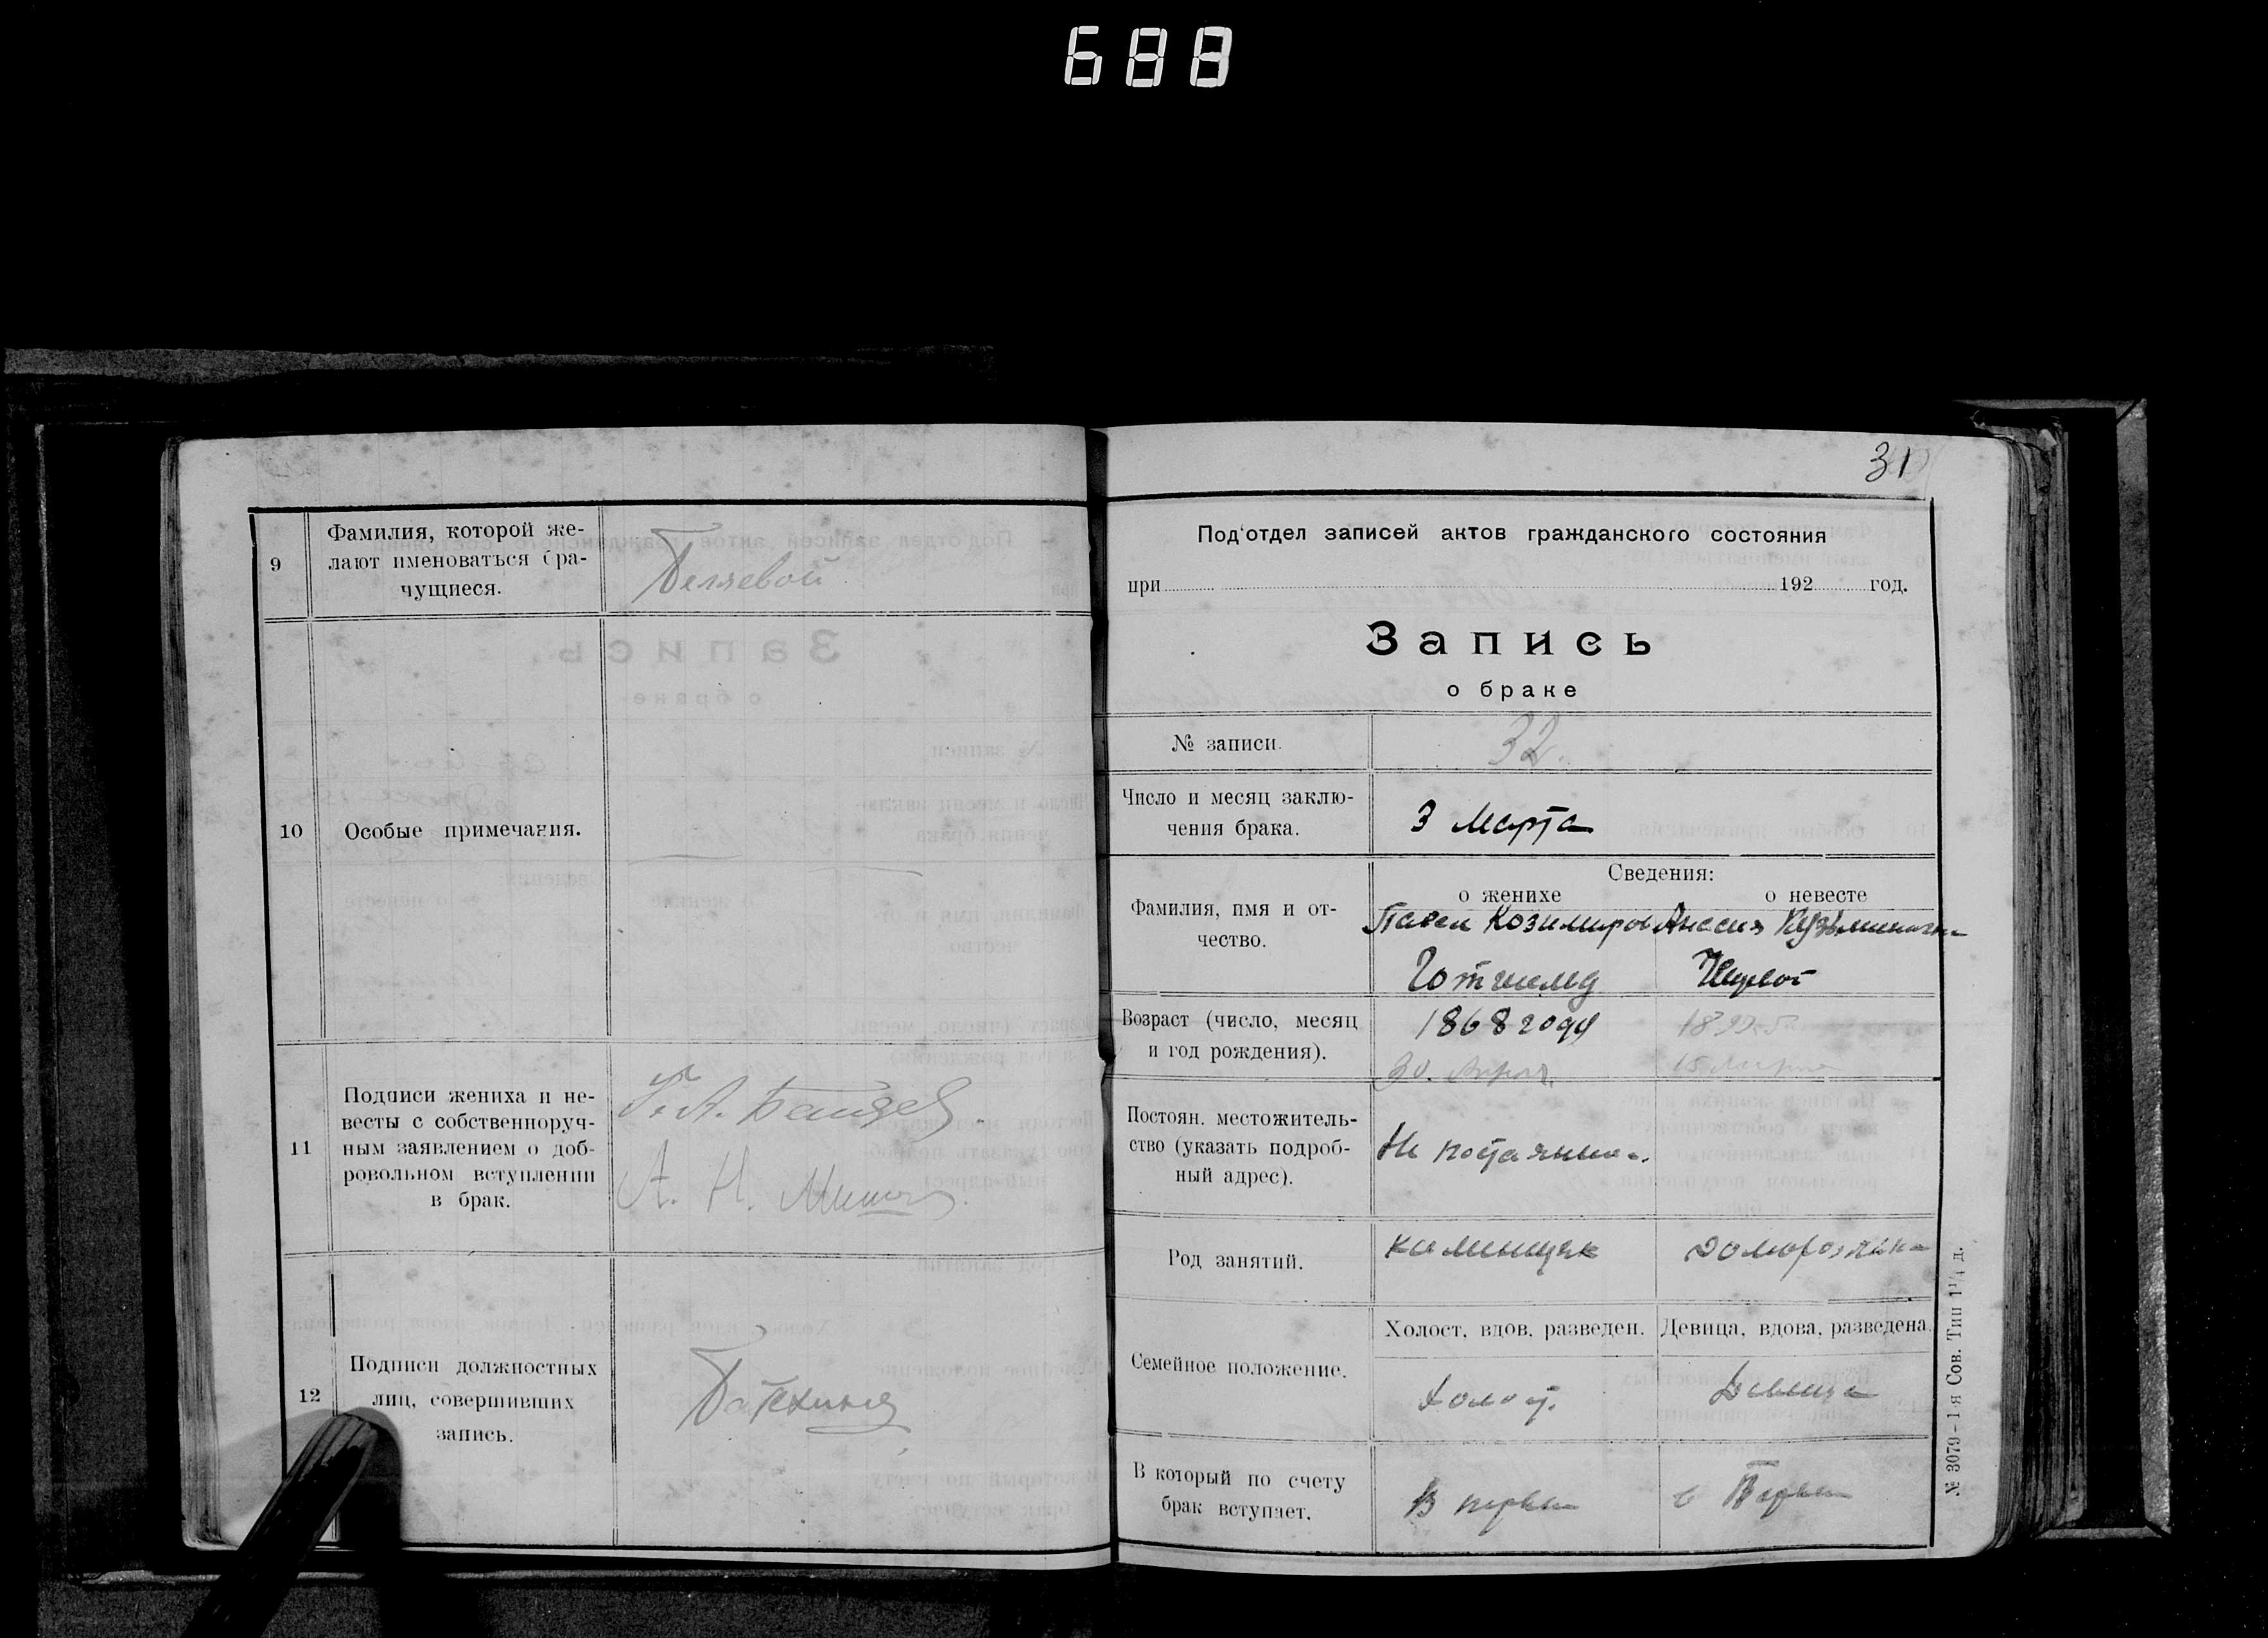 688
9
Фамилия, которой же-
лают именоваться бра-
чущиеся.
Беляевой
10
Особые примечания.
11
Подписи жениха и не-
весты с собственноруч-
ным заявлением о доб-
ровольном вступлении
в брак.
А. Н.
12
Подписи должностных
лиц, совершивших
запись.
31
Под'отдел записей актов гражданского состояния
при 192 год.
Запись
о браке
№ записи.
32.
Число и месяц заклю-
чения брака.
3 Марта
Сведения:
о женихе о невесте
Фамилия, имя и от-
чество.
Павел Козимиров
Возраст (число, месяц
и год рождения).
1868 году
30. Апреля.
15
Постоян. местожитель-
ство (указать подроб-
ный адрес).
Не
Род занятий.
Каменщик Домороз
Семейное положение.
Холост, вдов, разведен. Девица, вдова, разведена.
Холост. Девица
В который по счету
брак вступает.
В первы в Первы
№ 3079-1-я Сов. Тип 1¹/₄ д.